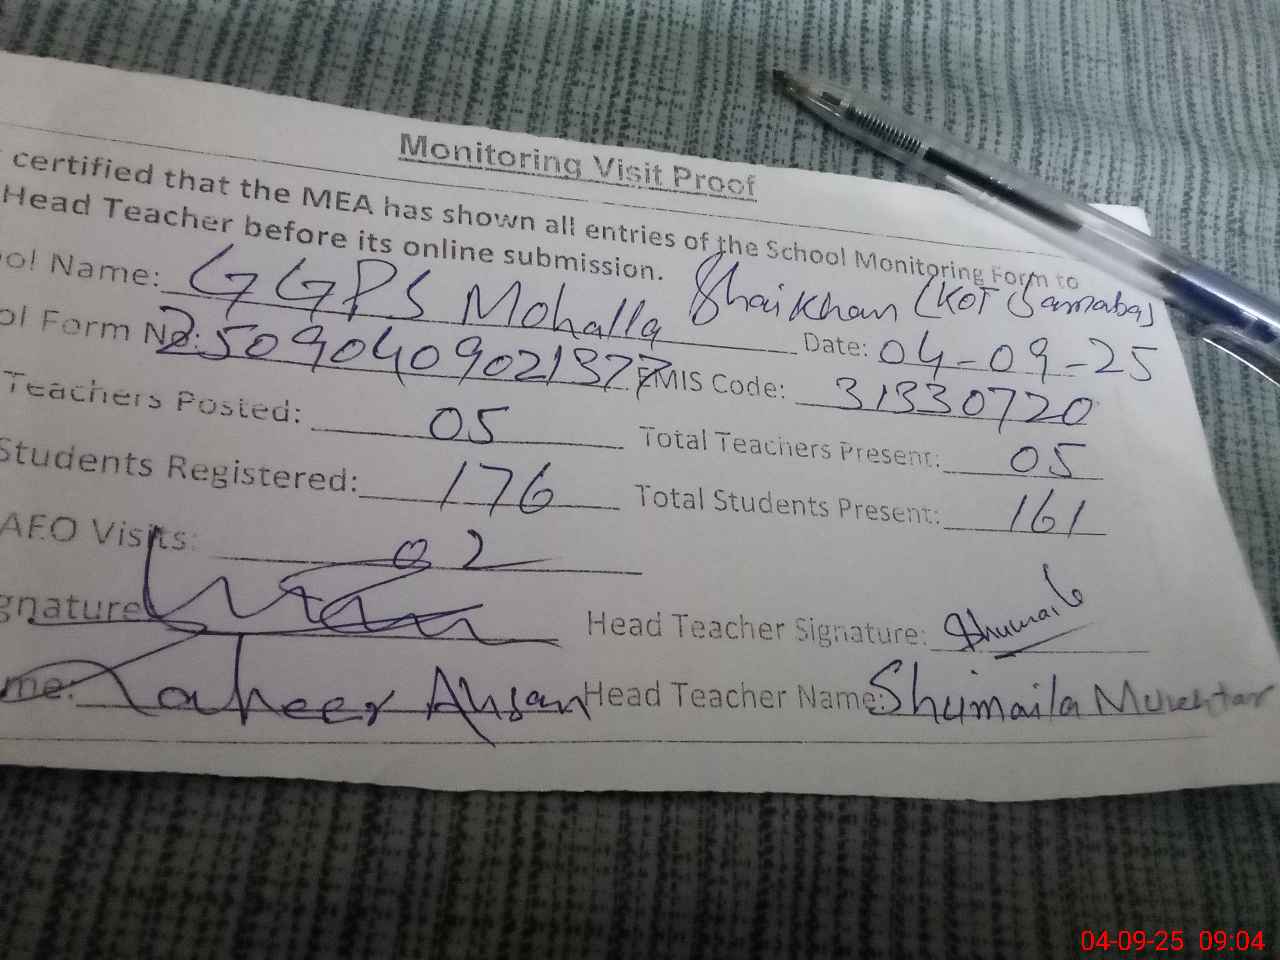 Monitoring Visit Proof
certified that the MEA has shown all entries of the School Monitoring Form to
Head Teacher before its online submission.
ool Name: GGPS Mohalla Shaikhan (Kot Samaba)
ol Form No: Date: 04-09-25
EMIS Code: 31330720
Teachers Posted: 05 Total Teachers Present: 05
Students Registered: 176 Total Students Present: 161
AEO Visits: 02
gnature Head Teacher Signature: Shumaila
me: Zaheer Ahsan Head Teacher Name: Shumaila Mukhtar
04-09-25 09:04